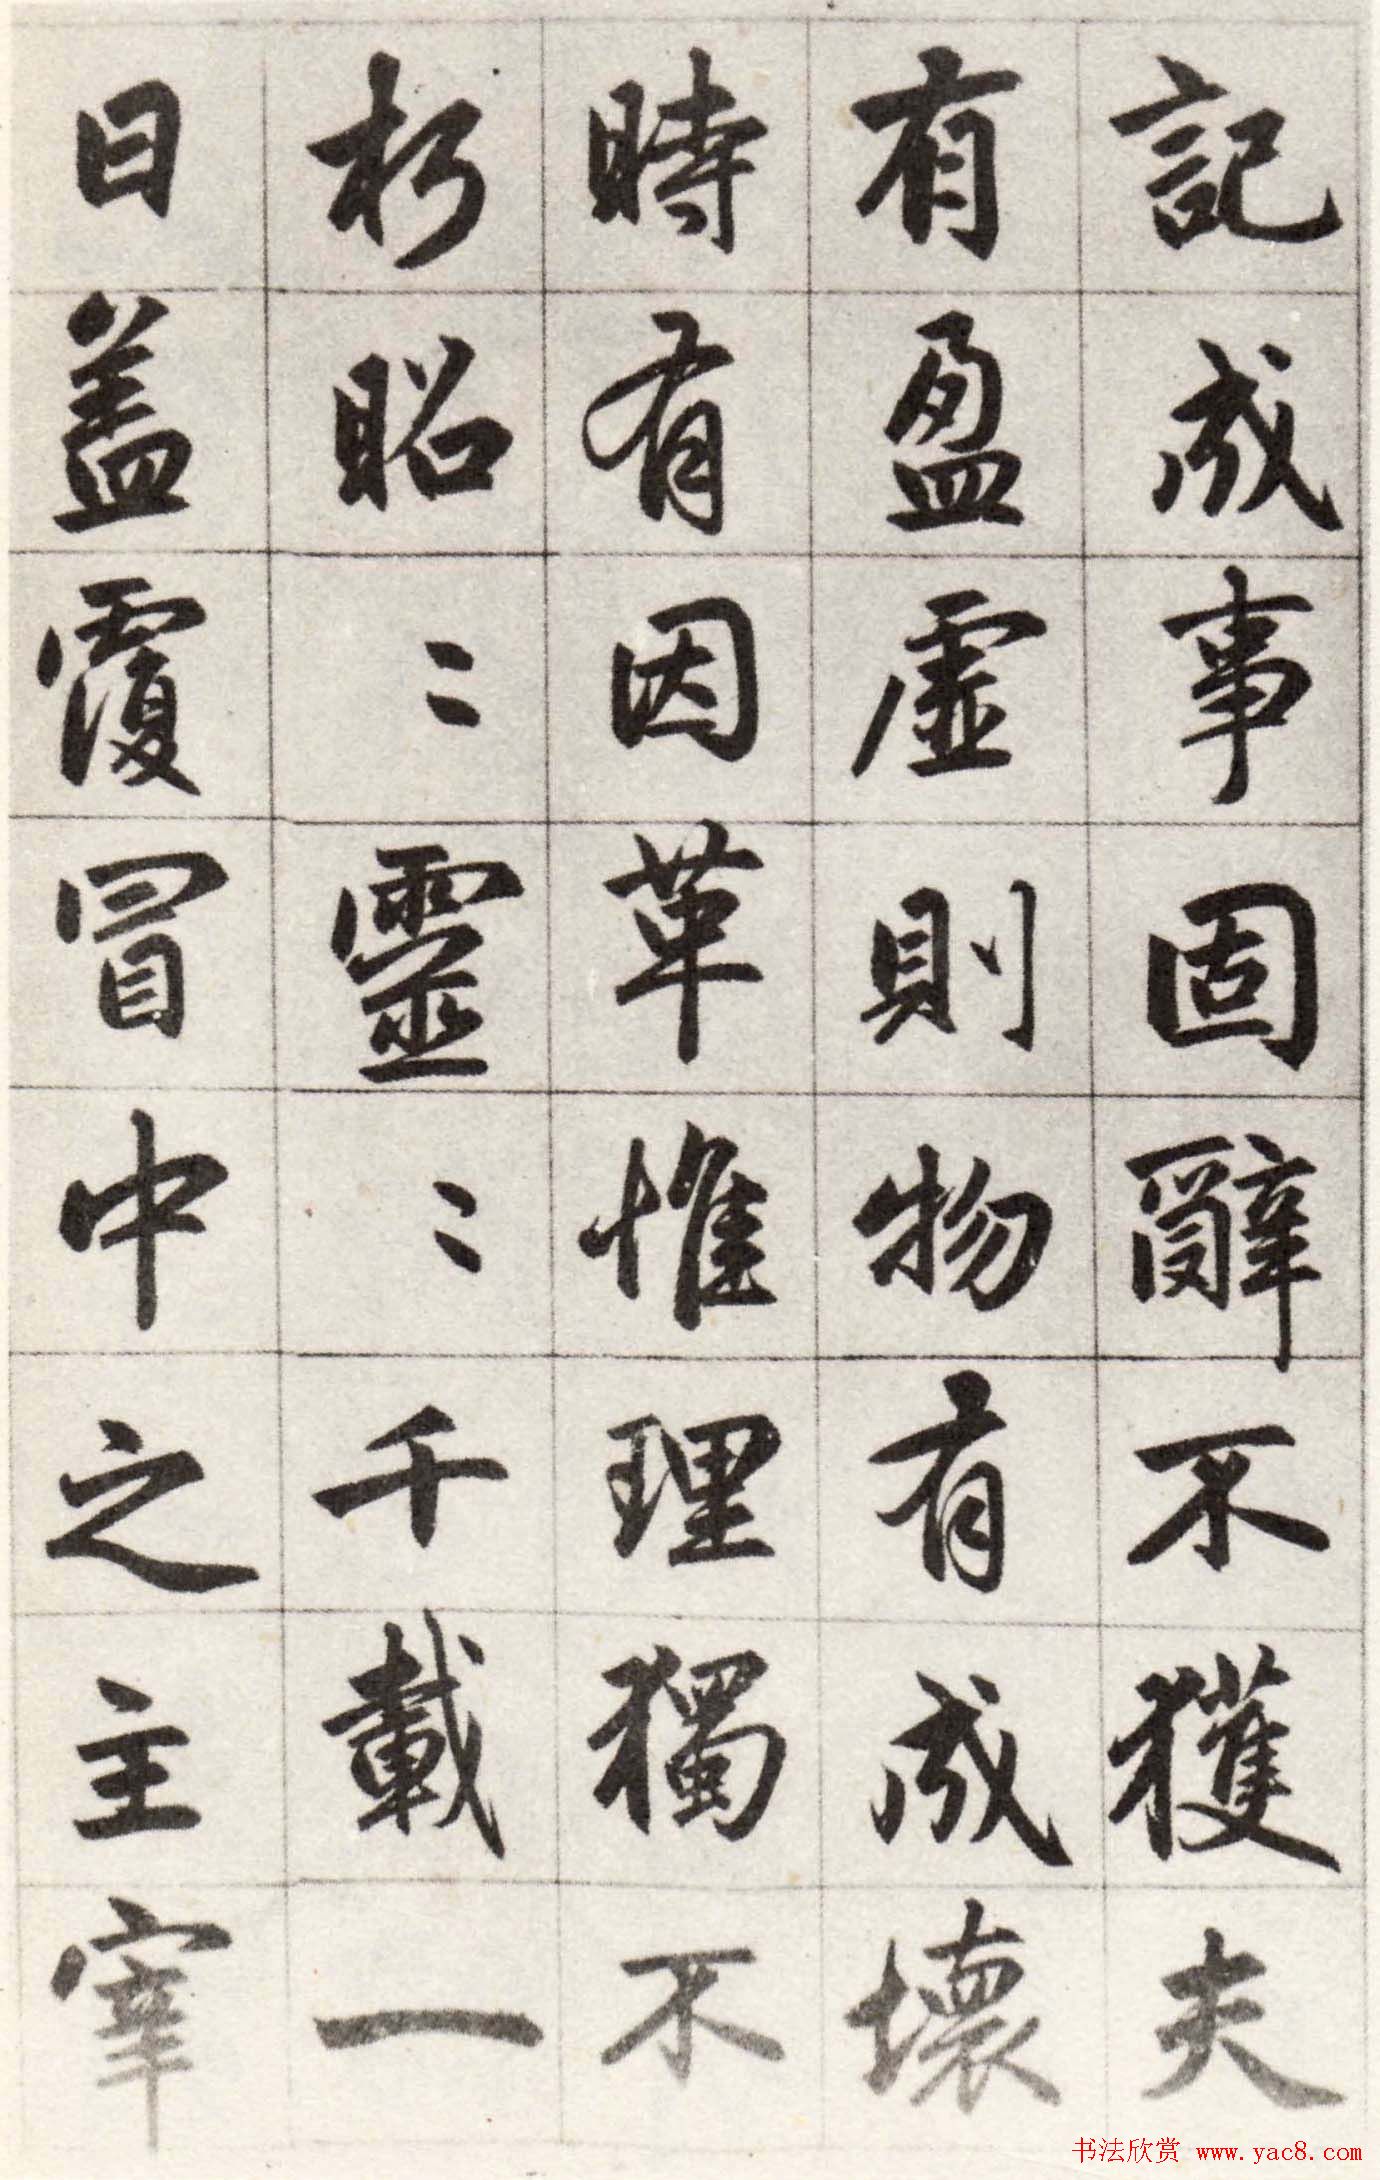 記成事固辭不獲夫
有盈虛則物有成壞
時有因革惟理獨不
朽昭〻靈〻千載一
日蓋覆冒中之主宰
书法欣赏 www.yac8.com